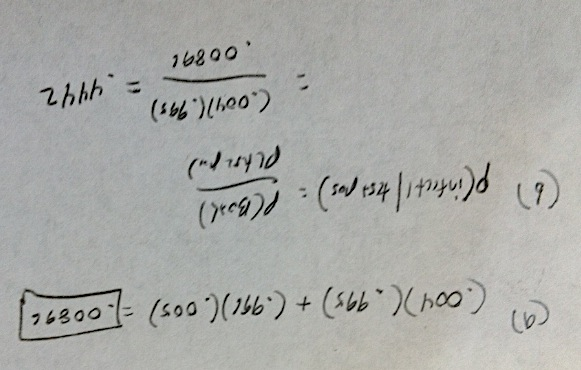 a) (.004)(.995) + (.996)(.005) = .00896
b) P(infect | tst pos) = P(Both)
P(tst pos)
= (.004)(.995) = .4442
.00896